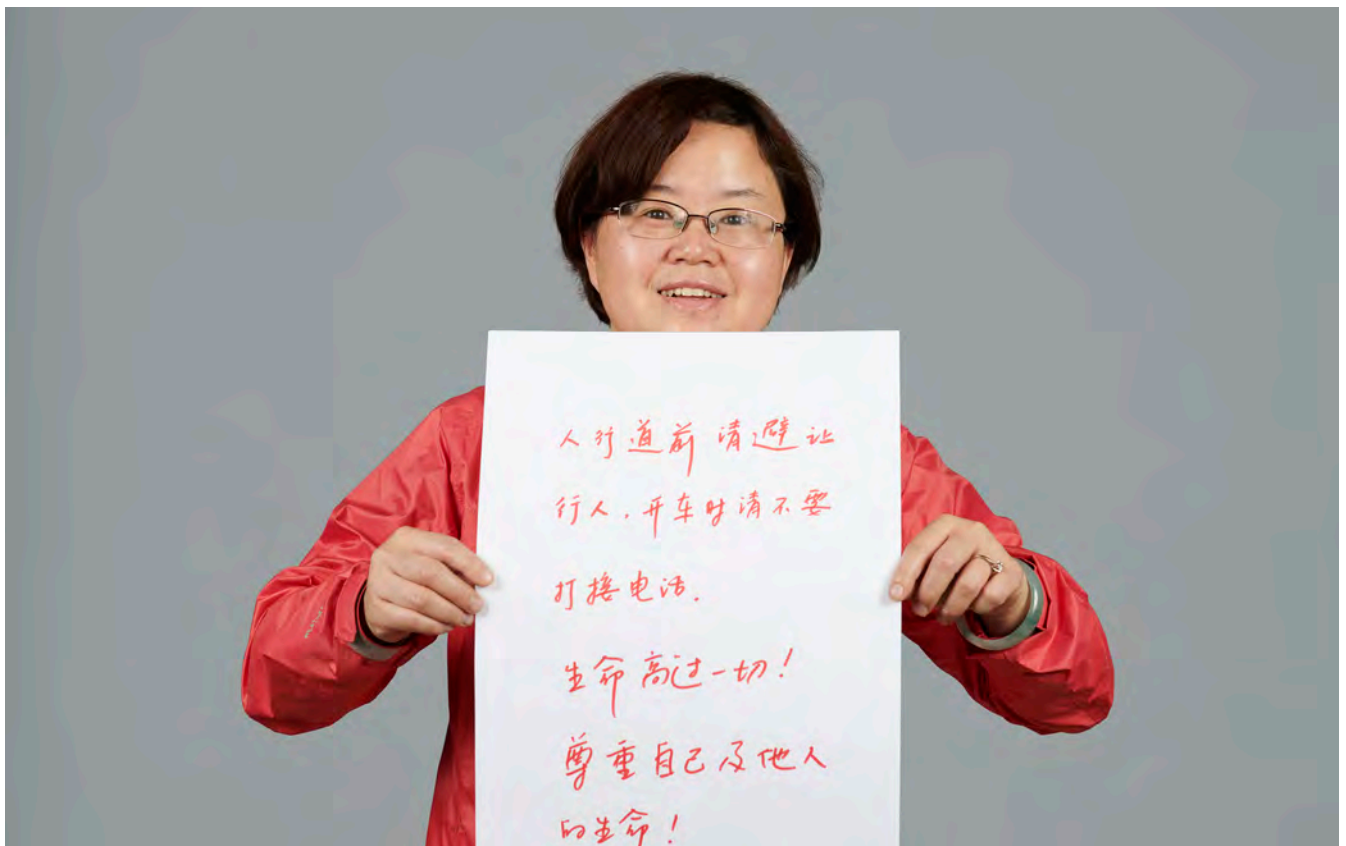 人行道前请避让
行人，开车时请不要
打接电话.
生命高过一切！
尊重自己及他人
的生命！